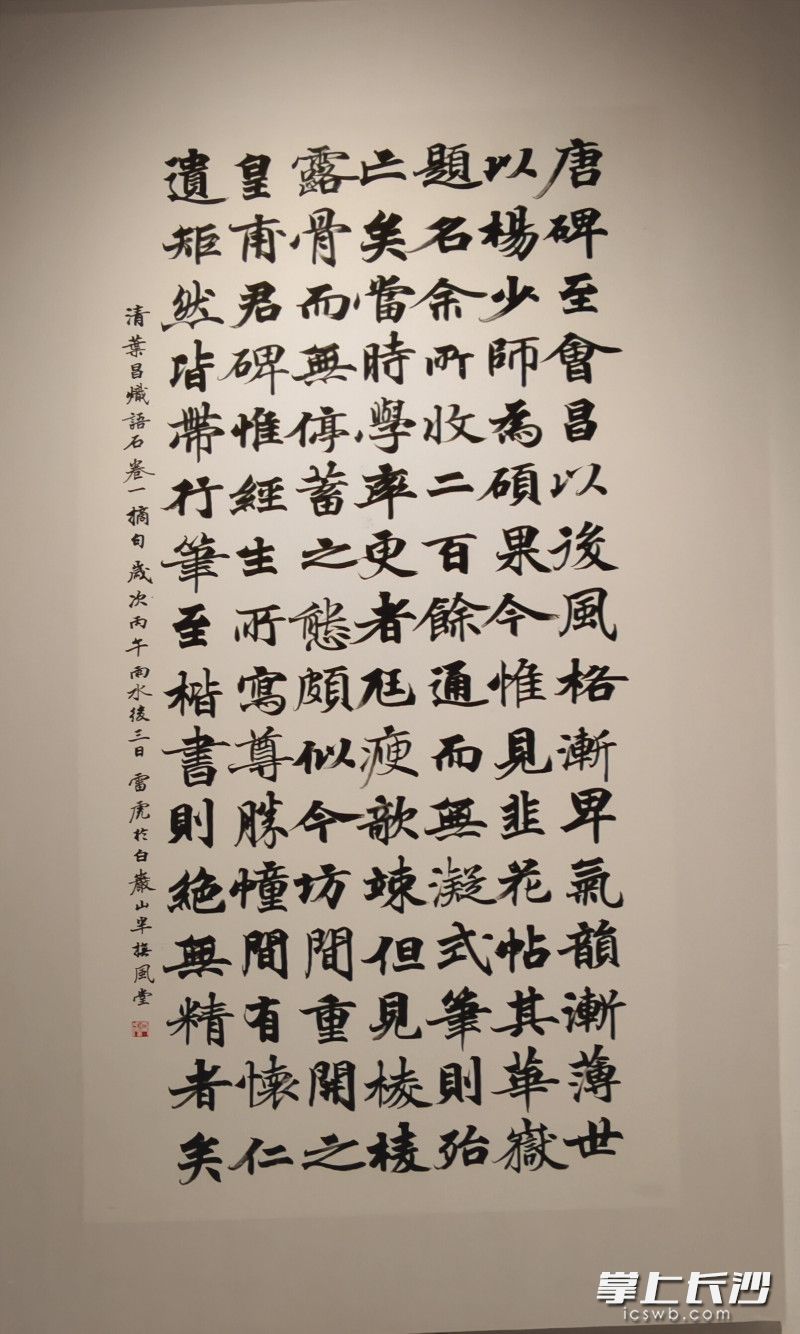 唐碑至會昌以後風格漸卑氣韻漸薄世
以楊少師為碩果今惟見韭花帖其華嶽
題名余所收二百餘通而無凝式筆則殆
亡矣當時學率更者尪瘦歃竦但見棱棱
露骨而無停蓄之態頗似今坊間重開之
皇甫君碑惟經生所寫尊勝幢間有懷仁
遺矩然皆帶行筆至楷書則絕無精者矣
清葉昌熾語石卷一摘句歲次丙午雨水後三日雷虎於白巖山半撫風堂
掌上长沙
icswb.com